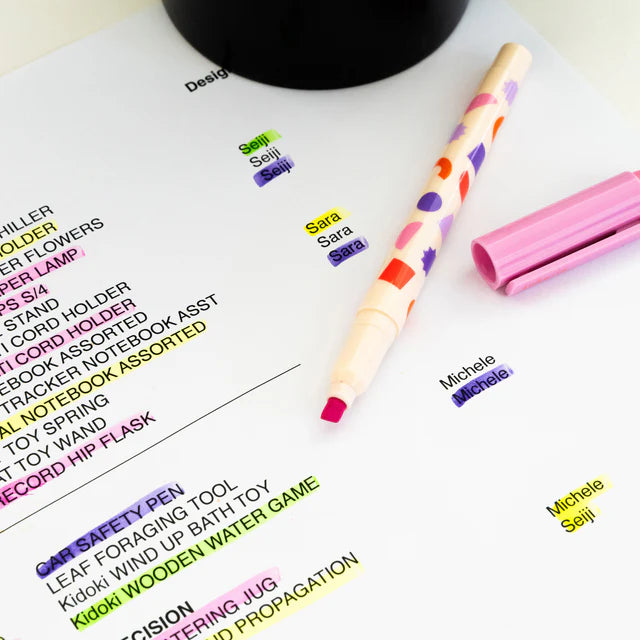 Design
Seiji
Seiji
Seiji
Sara
Sara
Sara
HILLER
HOLDER
ER FLOWERS
PER LAMP
PS S/4
STAND
TI CORD HOLDER
TI CORD HOLDER
EBOOK ASSORTED
TRACKER NOTEBOOK ASST
AL NOTEBOOK ASSORTED
TOY SPRING
AT TOY WAND
RECORD HIP FLASK
Michele
Michele
CAR SAFETY PEN
LEAF FORAGING TOOL
Kidoki WIND UP BATH TOY
Kidoki WOODEN WATER GAME
Michele
Seiji
ECISION
TERING JUG
ND PROPAGATION